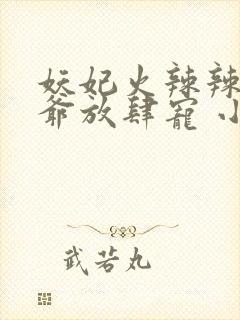 妖妃火辣辣
爷放肆宠 小
武若丸